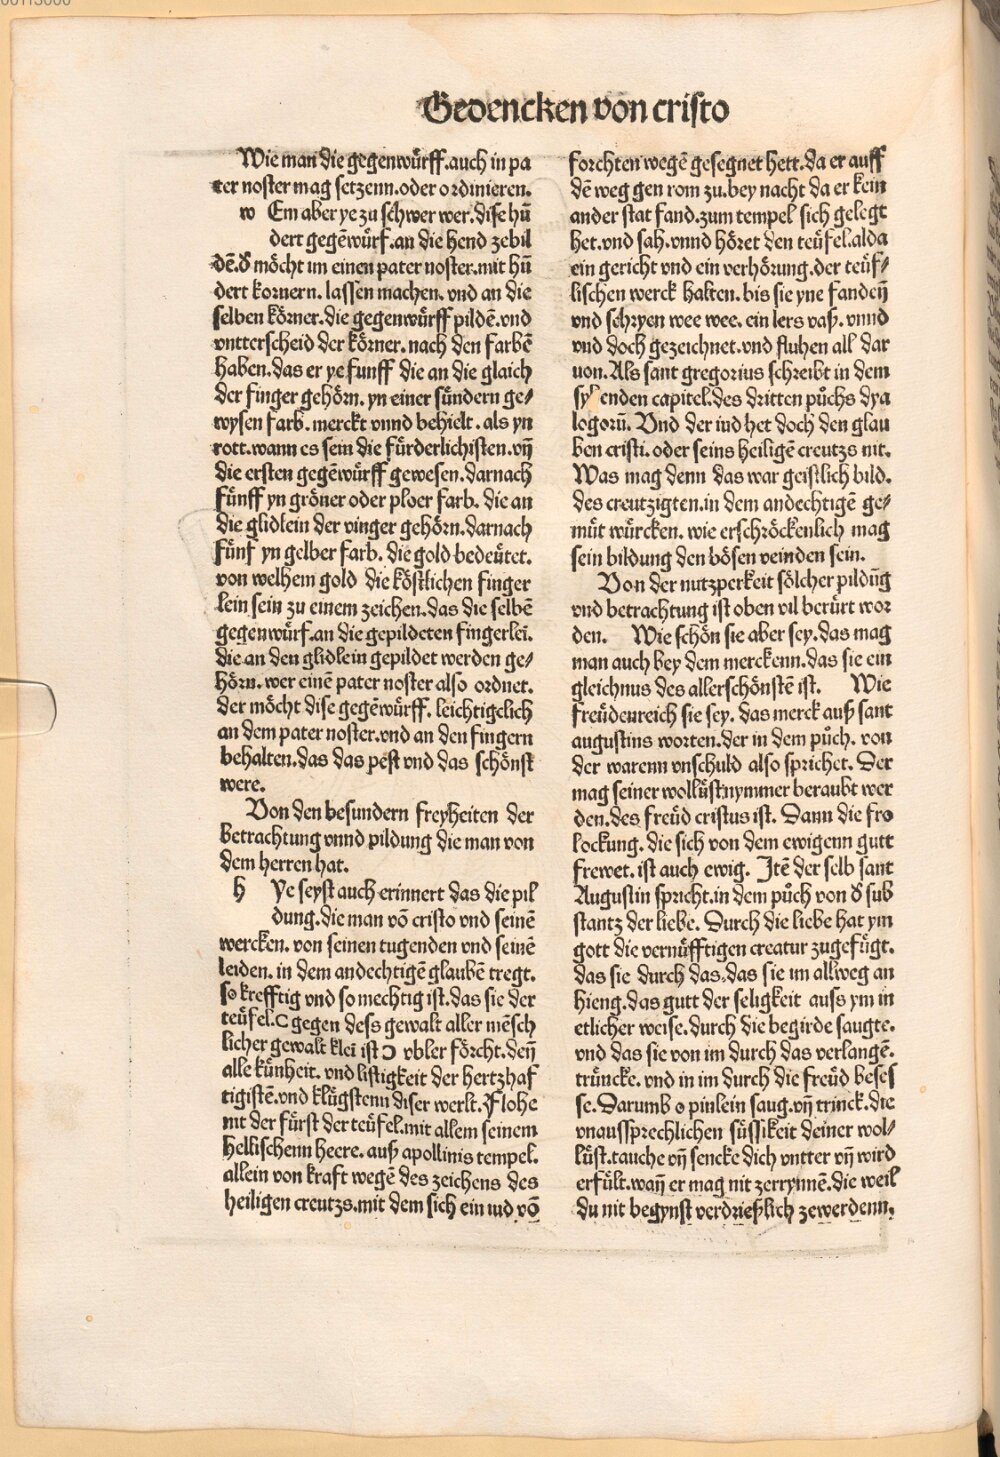 Gedencken von cristo
Wie man die gegenwürff.auch in pa
ter noster mag setzenn.oder ordinieren.
w Em aber ye zu schwer wer.dise hū
dert gegēwürf.an die hend zebil
dē.d̄ möcht im einen pater noster.mit hū
dert kornern. lassen machen. vnd an die
selben körner.die gegenwürff pildē.vnd
vntterscheid der körner. nach den farbē
haben.das er ye funff die an die glaich
der finger gehörn. yn einer sündern ge⸗
wysen farb. merckt vnnd behielt. als yn
rott.wann es sein die fürderlichisten.vn̄
die ersten gegēwürff gewesen.darnach
fünff yn gröner oder ploer farb. die an
die glidlein der vinger gehörn.darnach
fünf yn gelber farb. die gold bedeütet.
von welhem gold die köstlichen finger
lein sein zu einem zeichen.das die selbē
gegenwürf.an die gepildeten fingerlei.
die an den glidlein gepildet werden ge⸗
hörn. wer einē pater noster also ordnet.
der möcht dise gegēwürff. leichtigclich
an dem pater noster.vnd an den fingern
behalten.das das pest vnd das schönst
were.
Von den besundern freyheiten der
betrachtung vnnd pildung die man von
dem herren hat.
h Ye seyst auch erinnert das die pil
dung.die man vō cristo vnd seinē
wercken. von seinen tugenden vnd seinē
leiden. in dem andechtigē glaubē tregt.
so krefftig vnd so mechtig ist.das sie der
teüfel.C gegen dess gewalt aller mēsch
licher gewalt klei ist Ɔ vbler förcht.den̄
alle künheit. vnd listigkeit der hertzhaf
tigistē.vnd klügstenn diser werlt.Flohe
nit der fürst der teüfel.mit allem seinem
hellischenn heere. auß apollinis tempel.
allein von kraft wegē des zeichens des
heiligen creutzs.mit dem sich ein iud vō
forchten wegē gesegnet hett.da er auff
dē weg gen rom zu.bey nacht da er kein
ander stat fand.zum tempel sich gelegt
het.vnd sah.vnnd höret den teüfel.alda
ein gericht vnd ein verhörung.der teüf⸗
lischen werck halten. bis sie yne fanden̄
vnd schryen wee wee. ein lers vaß. vnnd
vnd doch gezeichnet.vnd fluhen all dar
uon. Als sant gregorius schreibt in dem
enden capitel.des dritten půchs dya
logorū. Vnd der iud het doch den glau
ben cristi. oder seins heiligē creutzs nit.
Was mag denn das war geistlich bild.
des creutzigten.in dem andechtigē ge⸗
müt würcken. wie erschröckenlich mag
sein bildung den bösen veinden sein.
Von der nutzperkeit sölcher pildūg
vnd betrachtung ist oben vil berürt wor
den. Wie schön sie aber sey.das mag
man auch bey dem merckenn.das sie ein
gleichnus des allerschönstē ist. Wie
freüdenreich sie sey. das merck auß sant
augustins worten.der in dem půch. von
der warenn vnschuld also sprichet. Der
mag seiner wollüst nymmer beraubt wer
den.des freüd cristus ist. Dann die fro
lockung. die sich von dem ewigenn gutt
frewet. ist auch ewig. Jtē der selb sant
Augustin spricht.in dem půch von d̄ sub
stantz der liebe. Durch die liebe hat ym
gott die vernüfftigen creatur zugefügt.
das sie durch das.das sie im allweg an
hieng.das gutt der seligkeit auss ym in
etlicher weise.durch die begirde saugte.
vnd das sie von im durch das verlangē.
trüncke. vnd in im durch die freüd beses
se.Darumb o pinlein saug.vn̄ trinck.die
vnaussprechlichen süssikeit deiner wol⸗
lüst.tauche vn̄ sencke dich vntter vn̄ wird
erfült.wan̄ er mag nit zerrynnē.die weil
du nit begynst verdrießlich zewerdenn.